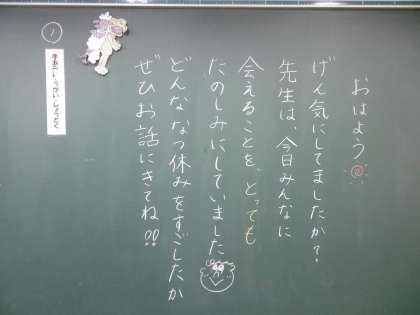 おはよう
げん気にしてましたか?
先生は、今日みんなに
会えることを、とっても
たのしみにしていました
どんななつ休みをすごしたか
ぜひお話にきてね!!
1
手あらい・うがい・しょうどく